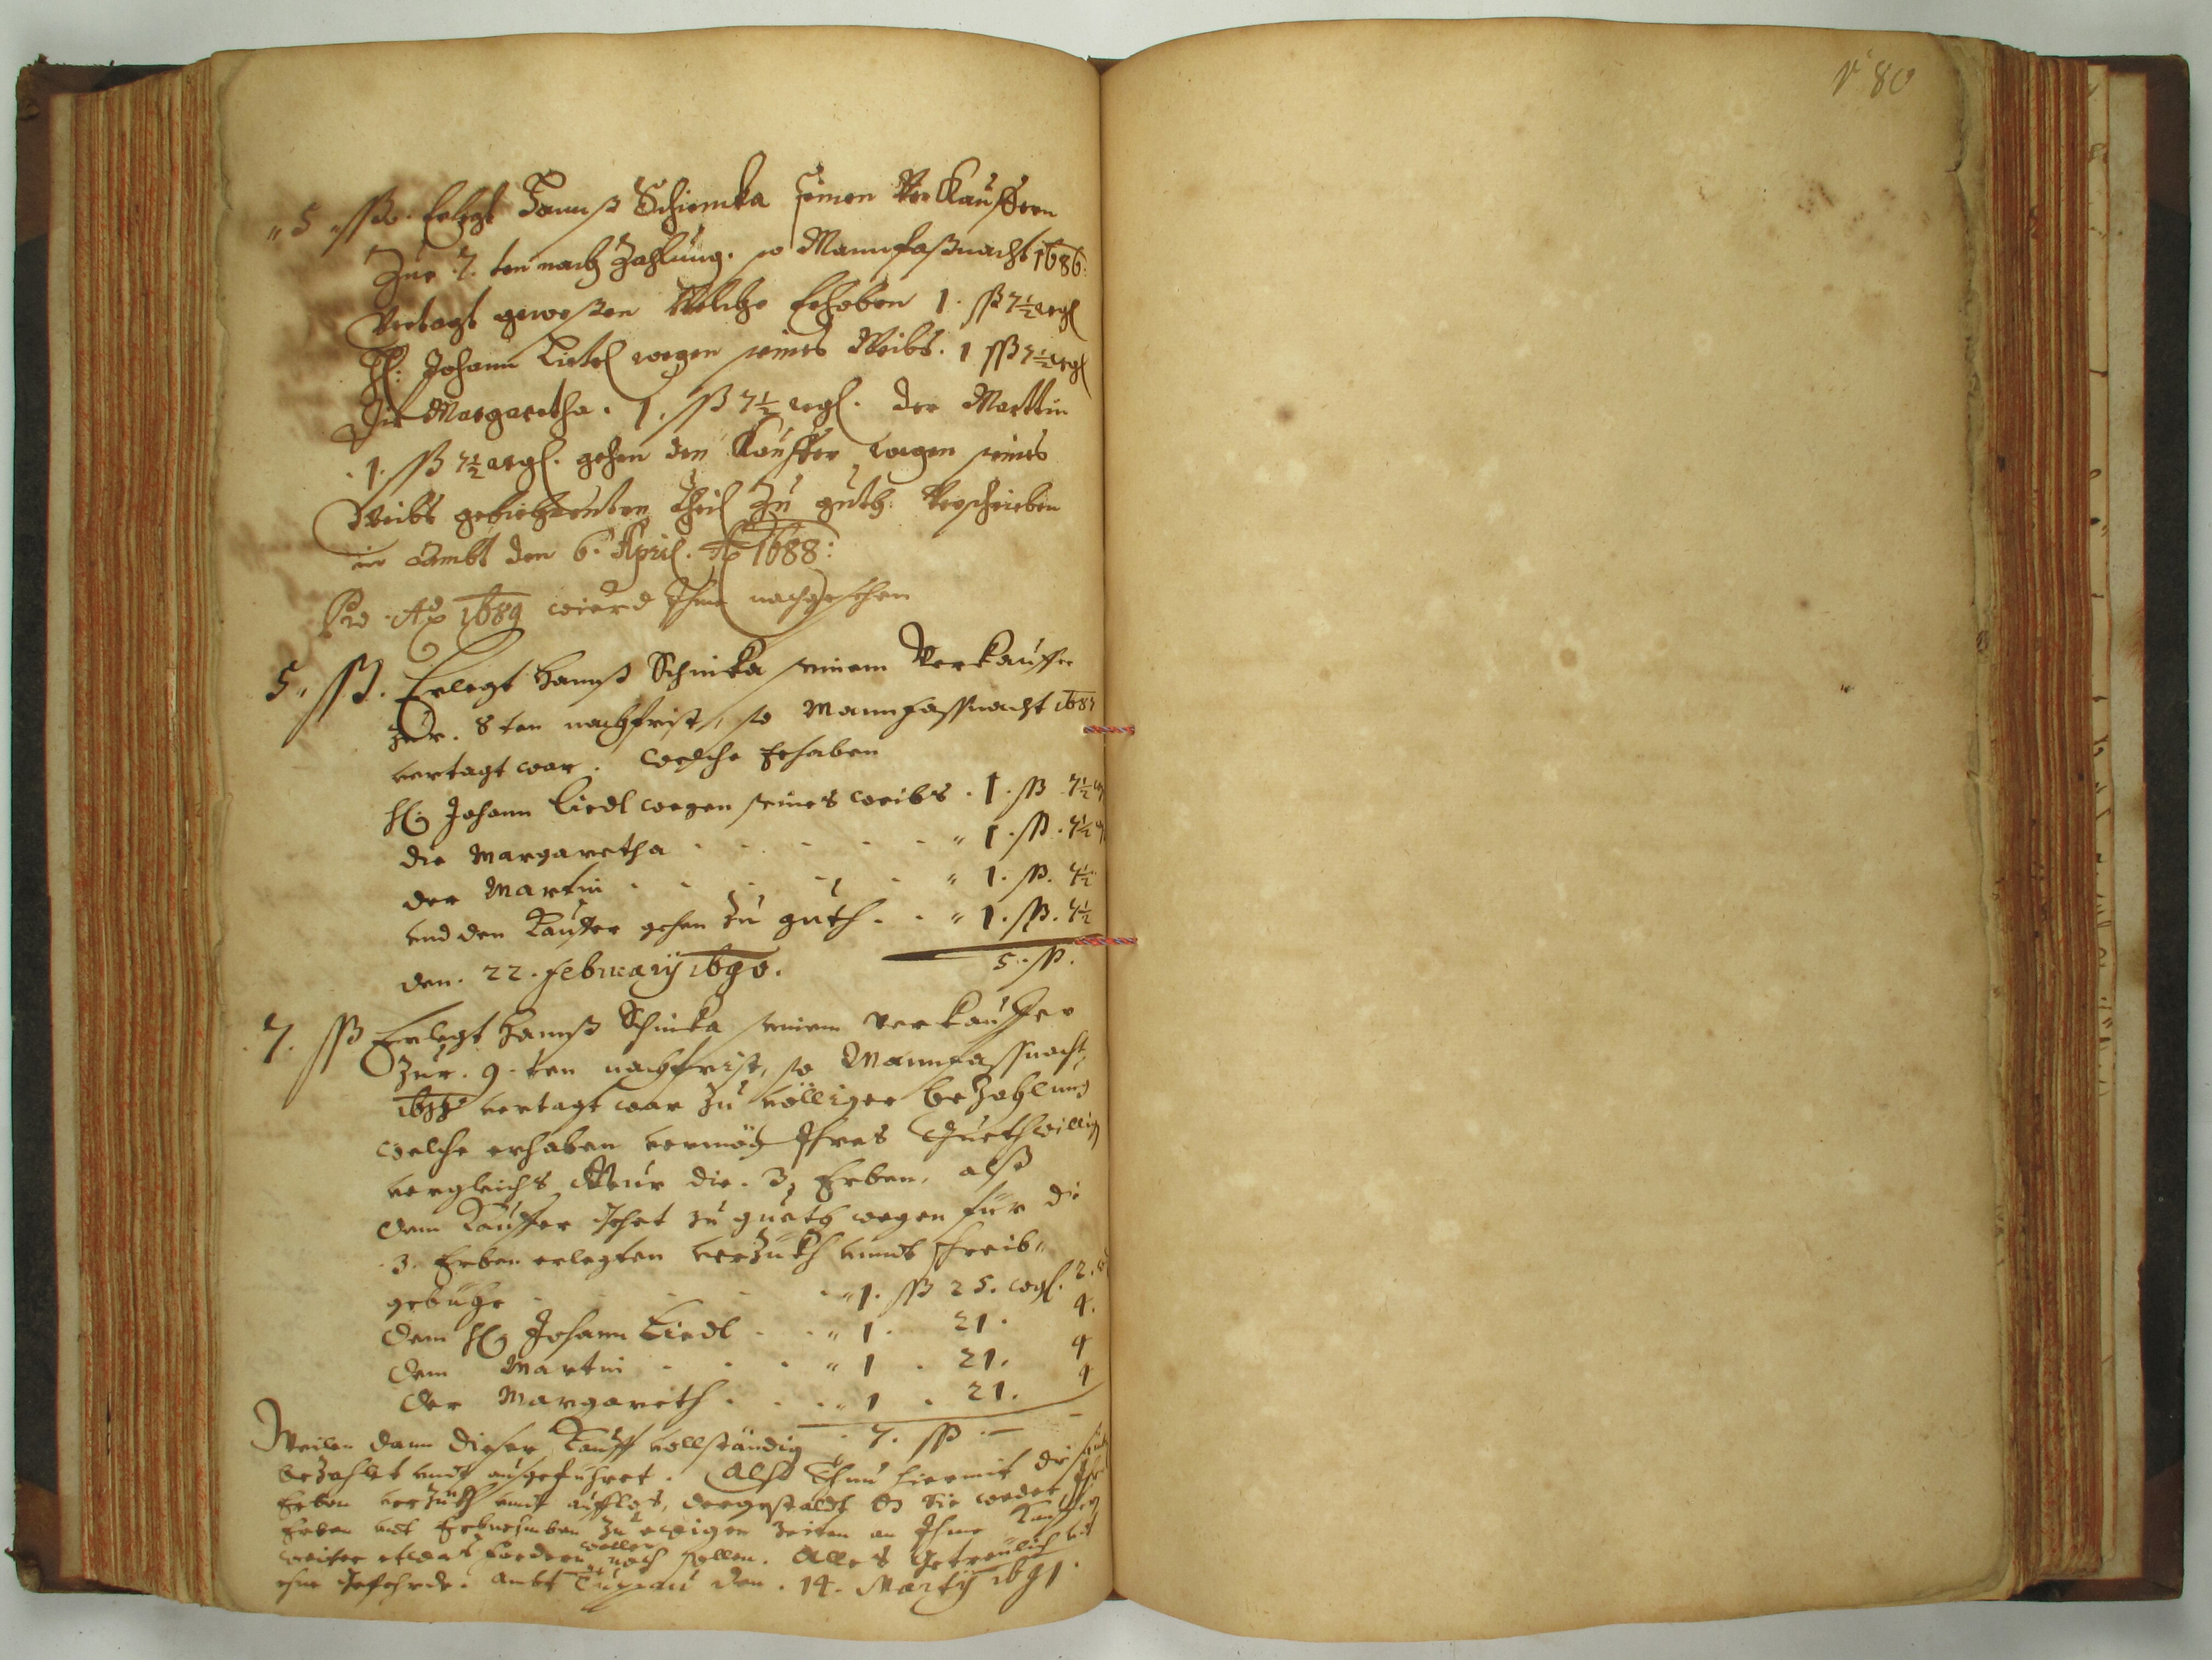 v 80
"5 ßo. Erlegt Hannß Schiemka seinen Verkauffern
Zur .7. ten nach Zahlung. so Mannfaßnacht 1686
Vertagt geweßen Welche Erhoben 1. ßß 7½ wgl
H: Johann Lietel wegen seines Weibs. 1 ßß 7½ wgl
Die Margaretha. 1. ßß 7½ wgl. der Marttin
.1. ßß 7½ wgl. gehen den Kauffer wegen seines
Weibs gebiehrenten Theil Zu guth. Verschrieben
in Ambt den 6. April. Ao 1688:
Pro Ao 1689 wierd Ihme nachgesehen
5. ßß. Erlegt Hannß Schinka seinem Verkauffer
zur. 8 ten nachfrist, so Mannfassnacht 1687
vertagt war. welche Erhaben
H: Johann Liedl wegen seines weibs . 1. ßß 7½
die Margaretha . . . . . " 1. ßß. 7½
der Martin . . . . . " 1. ßß. 7½
vnd den Kauffer gehen zu guth . . " 1. ßß. 7½
den. 22. February 1690. 5. ßß.
.7. ßß Erlegt Hannß Schinka seinem Verkauffer
zur. 9. ten nachfrist, so Mannfassnacht
1688 vertagt war zu völliger bezahlung
welche erhaben vermög Ihres guethwillig
vergleichs Nur die. 3. Erben, alß
dem Kauffer gehet zu gueth wegen für die
.3. Erben erlegten verzukh vnndt schreib=
gebühr . . . "1. ßß 25. wgl. 2.
dem H: Johann Liedl . . " 1. 21. 4.
dem Martin . . . " 1. 21. 4
der Margareth . . . " 1. 21. 4
Weilen dann dieser Kauff vollständig . 7. ßß. —
bezahlt vndt außgeführet. Alß Thun hiermit die
Erben verzukh vndt aufflas, dergestaldt dz Sie weder Ihre
Erben vndt Erbnehmben zu ewigen Zeiten an Ihme Kauffer
weiter etwas fordern wellen noch sollen. Alles getreulich vndt
ohne Gefehrde. Ambt den. 14. Marty 1691.